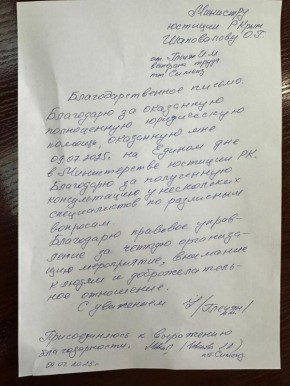 Министру
юстиции РКрым
Шаповалову О.Г.
от Плеуж И.М.
ветерана труда
пгт.
Благодарственное письмо.
Благодарю за оказанную
полноценную юридическую
помощь, оказанную мне
09.07.2025г. на Едином дне
в Министерстве юстиции РК.
Благодарю за полученную
консультацию у нескольких
специалистов по различным
вопросам.
Благодарю правовое управ-
ление за четкую организа-
цию мероприятие, внимание
к людям и доброжелатель-
ное отношение.
С уважением /Плеуж/
Присоединяюсь к выражению
благодарности.
09.07.2025г